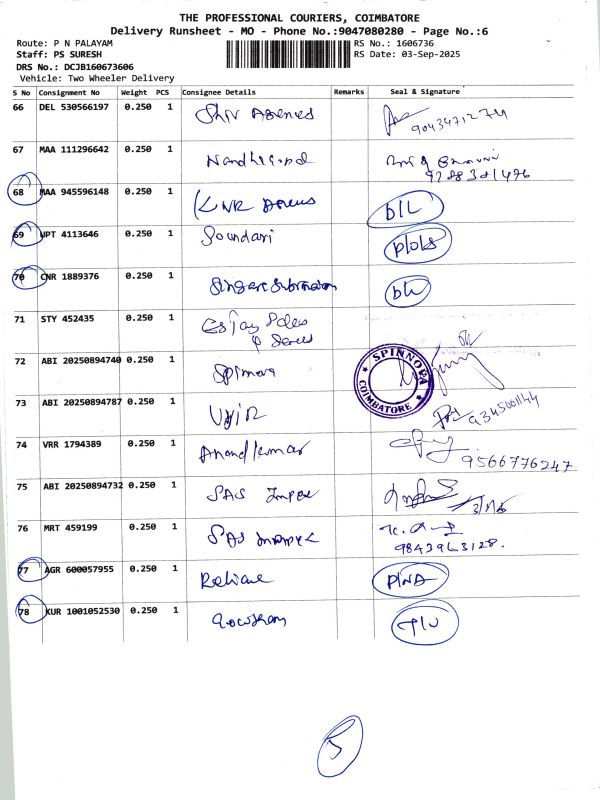 THE PROFESSIONAL COURIERS, COIMBATORE
Delivery Runsheet - MO - Phone No.:9047080280 - Page No.:6
Route: P N PALAYAM
Staff: PS SURESH
DRS No.: DCJB160673606
Vehicle: Two Wheeler Delivery
RS No.: 1606736
RS Date: 03-Sep-2025
S No Consignment No Weight PCS Consignee Details Remarks Seal & Signature
66 DEL 530566197 0.250 1 Shiv Agencies
9043471274
67 MAA 111296642 0.250 1
9788381496
68 MAA 945596148 0.250 1 KNR D/L
69 UPT 4113646 0.250 1 Soundari
70 CNR 1889376 0.250 1
71 STY 452435 0.250 1 Sales
& Services
72 ABI 20250894740 0.250 1 Spinnova
SPINNOVA
COIMBATORE
73 ABI 20250894787 0.250 1
74 VRR 1794389 0.250 1 Anandkumar
9566776247
75 ABI 20250894732 0.250 1 SAS Impex
76 MRT 459199 0.250 1 SAS Impex
9843963128.
77 AGR 600057955 0.250 1 P/NA
78 KUR 1001052530 0.250 1 Gowtham
5